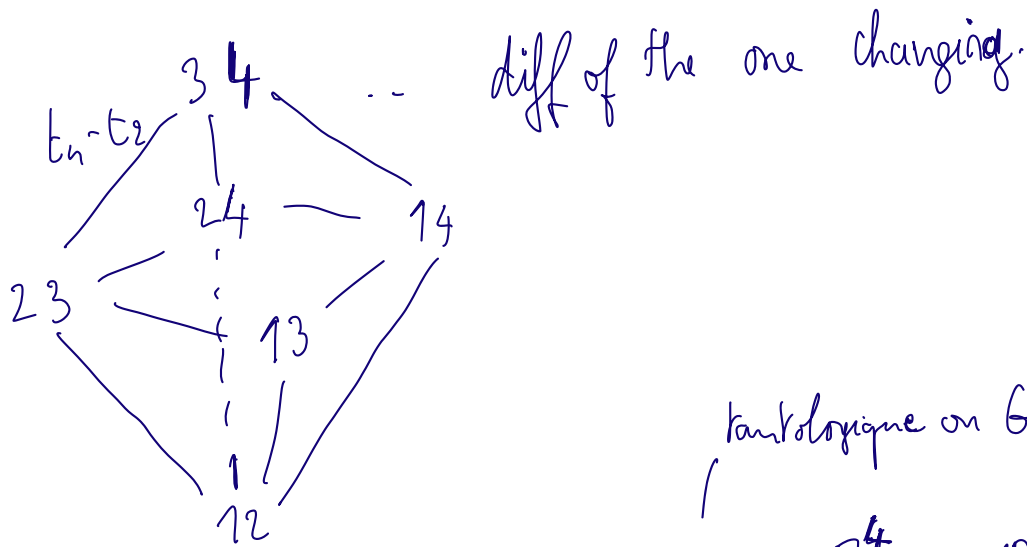 34 .. diff of the one changing.
t₄-t₂
24 14
23
13
12
tautologique on G
4